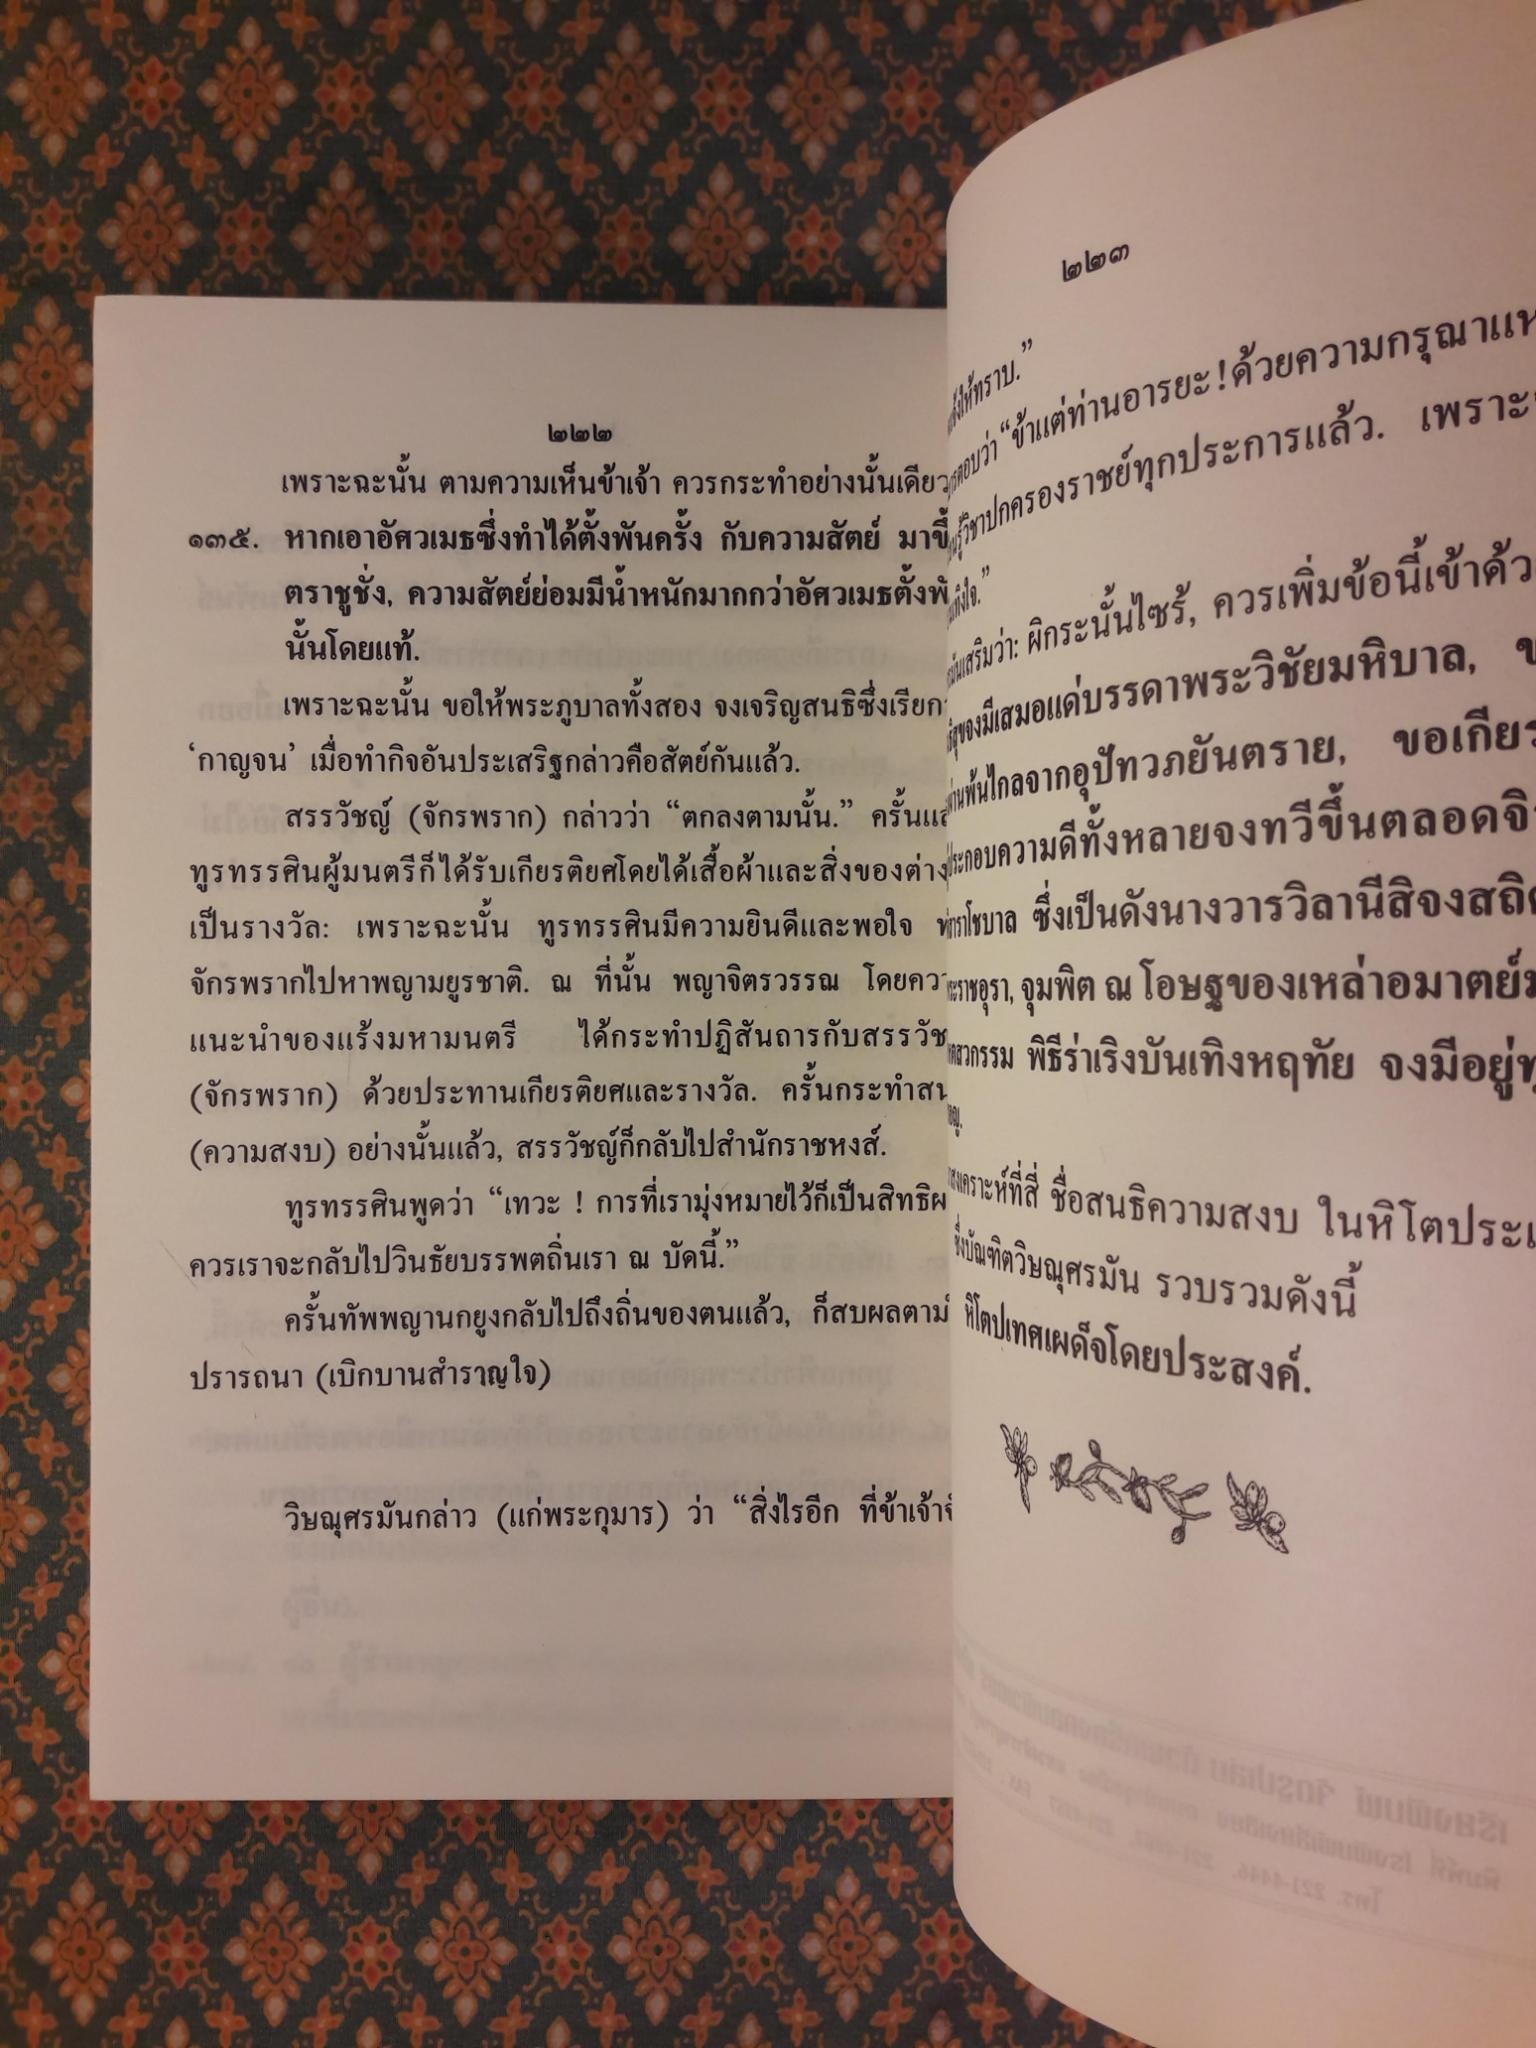 ๒๒๒
เพราะฉะนั้น ตามความเห็นข้าเจ้า ควรกระทำอย่างนั้นเดียว
๑๓๕. หากเอาอัศวเมธซึ่งทำได้ตั้งพันครั้ง กับความสัตย์ มาขึ้
ตราชูชั่ง, ความสัตย์ย่อมมีน้ำหนักมากกว่าอัศวเมธตั้งพั
นั้นโดยแท้.
เพราะฉะนั้น ขอให้พระภูบาลทั้งสอง จงเจริญสนธิซึ่งเรียก
‘กาญจน’ เมื่อทำกิจอันประเสริฐกล่าวคือสัตย์กันแล้ว.
สรรวัชญ์ (จักรพราก) กล่าวว่า “ตกลงตามนั้น.” ครั้นแล
ทูรทรรศินผู้มนตรีก็ได้รับเกียรติยศโดยได้เสื้อผ้าและสิ่งของต่าง
เป็นรางวัล: เพราะฉะนั้น ทูรทรรศินมีความยินดีและพอใจ พ
จักรพรากไปหาพญามยูรชาติ. ณ ที่นั้น พญาจิตรวรรณ โดยควา
แนะนำของแร้งมหามนตรี ได้กระทำปฏิสันถารกับสรรวัช
(จักรพราก) ด้วยประทานเกียรติยศและรางวัล. ครั้นกระทำสน
(ความสงบ) อย่างนั้นแล้ว, สรรวัชญ์ก็กลับไปสำนักราชหงส์.
ทูรทรรศินพูดว่า “เทวะ ! การที่เรามุ่งหมายไว้ก็เป็นสิทธิผ
ควรเราจะกลับไปวินธัยบรรพตถิ่นเรา ณ บัดนี้.”
ครั้นทัพพญานกยูงกลับไปถึงถิ่นของตนแล้ว, ก็สบผลตาม
ปรารถนา (เบิกบานสำราญใจ)
วิษณุศรมันกล่าว (แก่พระกุมาร) ว่า “สิ่งไรอีก ที่ข้าเจ้าจั
๒๒๓
ให้ทราบ.”
ตอบว่า “ข้าแต่ท่านอารยะ!ด้วยความกรุณาแห
รู้วิชาปกครองราชย์ทุกประการแล้ว. เพราะ
ถึงใจ.”
เสริมว่า: ผิกระนั้นไซร้, ควรเพิ่มข้อนี้เข้าด้ว
สุขจงมีเสมอแด่บรรดาพระวิชัยมหิบาล, ข
ท่านพ้นไกลจากอุปัทวภยันตราย, ขอเกียร
ประกอบความดีทั้งหลายจงทวีขึ้นตลอดจิ
ราโชบาล ซึ่งเป็นดังนางวารวิลานีสิจงสถิต
ระราชอุรา, จุมพิต ณ โอษฐของเหล่าอมาตย์
สวกรรม พิธีร่าเริงบันเทิงหฤทัย จงมีอยู่ทุ
สงเคราะห์ที่สี่ ชื่อสนธิความสงบ ในหิโตประเ
ซึ่งบัณฑิตวิษณุศรมัน รวบรวมดังนี้
หิโตปเทศเผด็จโดยประสงค์.